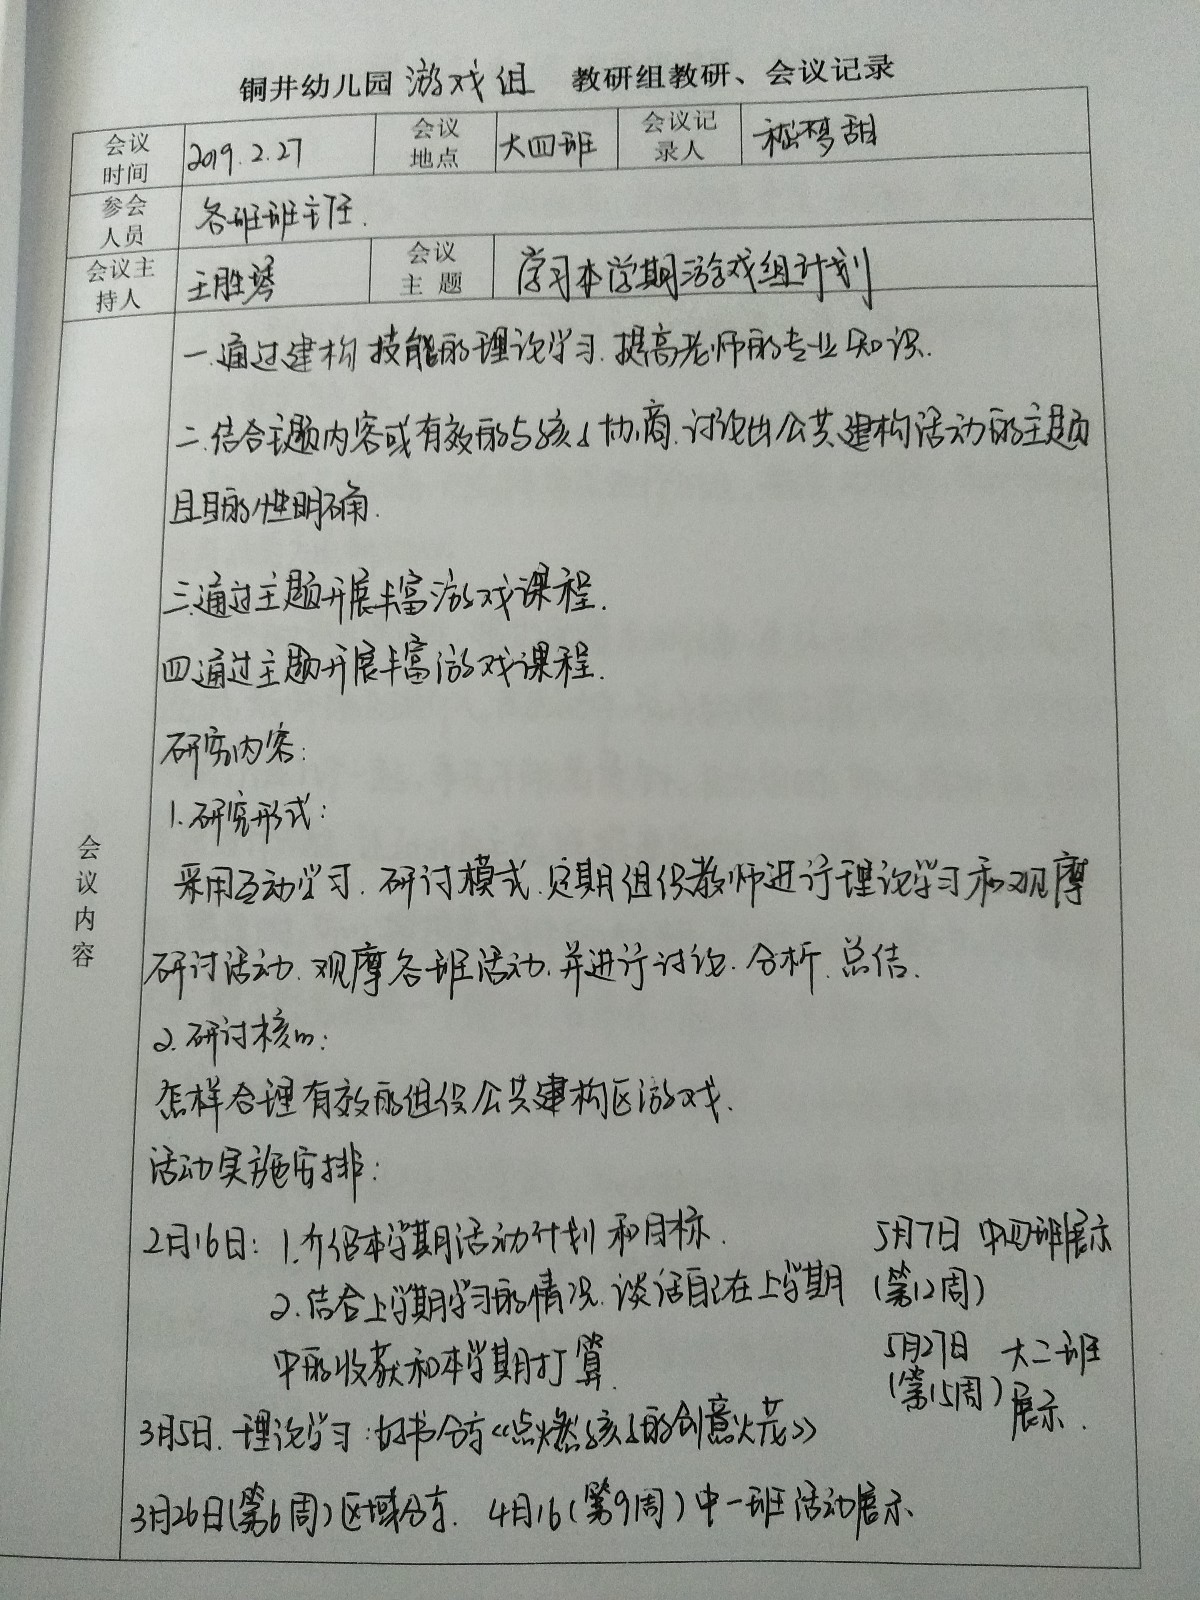 铜井幼儿园 游戏组 教研组教研、会议记录
会议时间 2019.2.27 会议地点 大四班 会议记录人 嵇梦甜
参会人员 各班班主任.
会议主持人 王胜琴 会议主题 学习本学期游戏组计划
会议内容
一.通过建构技能的理论学习.提高老师的专业知识.
二.结合主题内容或有效的与孩子协商.讨论出公共建构活动的主题
且目的性明确.
三.通过主题开展丰富游戏课程.
四通过主题开展丰富游戏课程.
研究内容:
1.研究形式:
采用互动学习.研讨模式.定期组织教师进行理论学习和观摩
研讨活动.观摩各班活动.并进行讨论.分析.总结.
2.研讨核心:
怎样合理有效的组织公共建构区游戏.
活动实施安排:
2月16日: 1.介绍本学期活动计划和目标.
2.结合上学期学习的情况.谈话自己在上学期
中的收获和本学期打算.
3月5日.理论学习:好书分享《点燃孩子的创意火花》
3月26日(第6周)区域分享. 4月16(第9周)中一班活动展示.
5月7日 中四班展示
(第12周)
5月27日 大二班
(第15周) 展示.